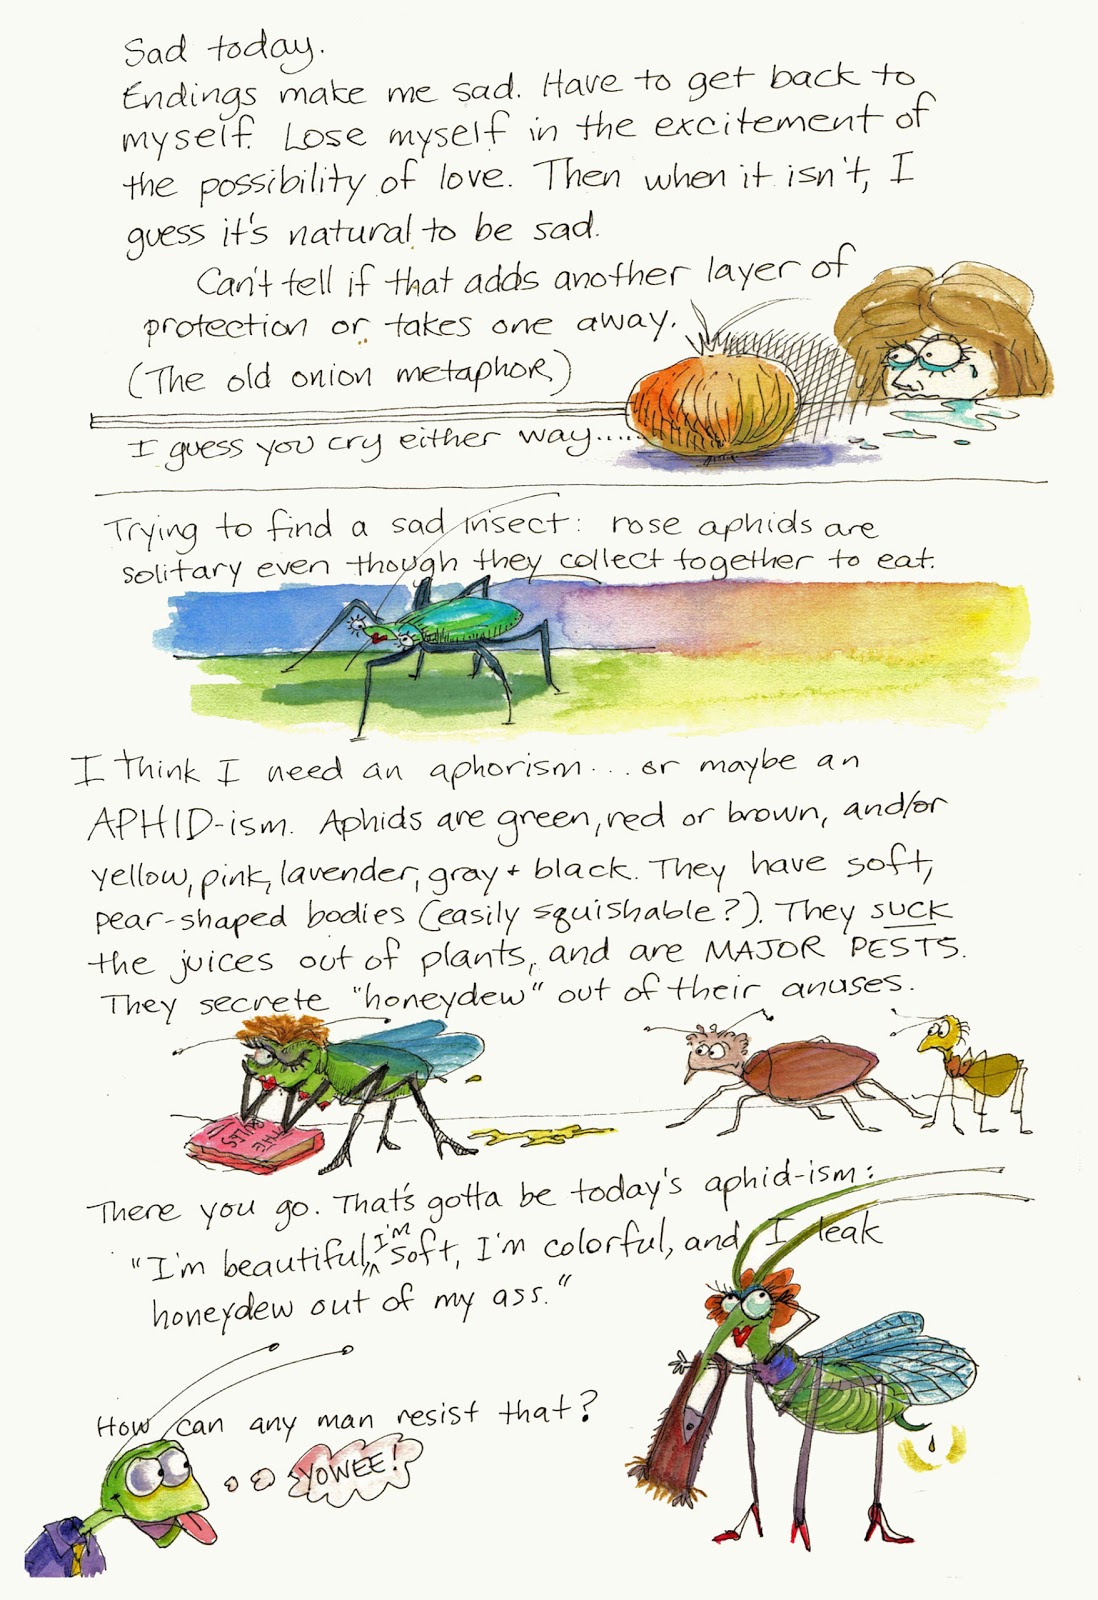 Sad today.
Endings make me sad. Have to get back to
myself. Lose myself in the excitement of
the possibility of love. Then when it isn't, I
guess it's natural to be sad.
Can't tell if that adds another layer of
protection or takes one away.
(The old onion metaphor)
I guess you cry either way.....
Trying to find a sad insect: rose aphids are
solitary even though they collect together to eat.
I think I need an aphorism... or maybe an
APHID-ism. Aphids are green, red or brown, and/or
yellow, pink, lavender, gray + black. They have soft,
pear-shaped bodies (easily squishable?). They suck
the juices out of plants, and are MAJOR PESTS.
They secrete "honeydew" out of their anuses.
THE
RULES
There you go. That's gotta be today's aphid-ism:
"I'm beautiful, I'm soft, I'm colorful, and I leak
honeydew out of my ass."
How can any man resist that?
YOWEE!